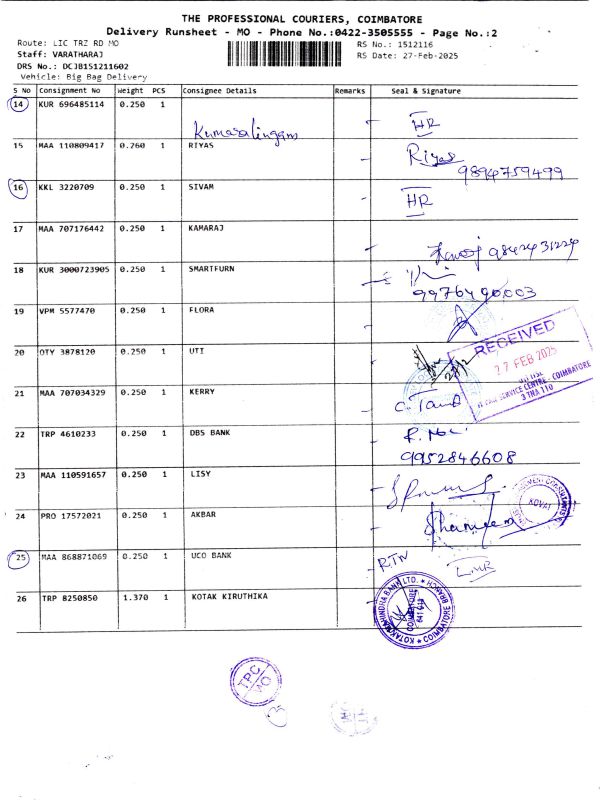 THE PROFESSIONAL COURIERS, COIMBATORE
Delivery Runsheet - MO - Phone No.:0422-3505555 - Page No.:2
Route: LIC TRZ RD MO
RS No.: 1512116
Staff: VARATHARAJ
RS Date: 27-Feb-2025
DRS No.: DCJB151211602
Vehicle: Big Bag Delivery
S No Consignment No Weight PCS Consignee Details Remarks Seal & Signature
14 KUR 696485114 0.250 1 HR
Kumaralingam
15 MAA 110809417 0.760 1 RIYAS Riyas
9894759499
16 KKL 3220709 0.250 1 SIVAM HR
17 MAA 707176442 0.250 1 KAMARAJ
9842431224
18 KUR 3000723905 0.250 1 SMARTFURN
9976490003
19 VPM 5577470 0.250 1 FLORA
RECEIVED
27 FEB 2025
COIMBATORE
20 OTY 3878120 0.250 1 UTI
21 MAA 707034329 0.250 1 KERRY
22 TRP 4610233 0.250 1 DBS BANK
9952846608
23 MAA 110591657 0.250 1 LISY
KOVAI
24 PRO 17572021 0.250 1 AKBAR Shameem
25 MAA 868871069 0.250 1 UCO BANK RTN
26 TRP 8250850 1.370 1 KOTAK KIRUTHIKA
KOTAK MAHINDRA BANK LTD. COIMBATORE BRANCH
TPC
MO